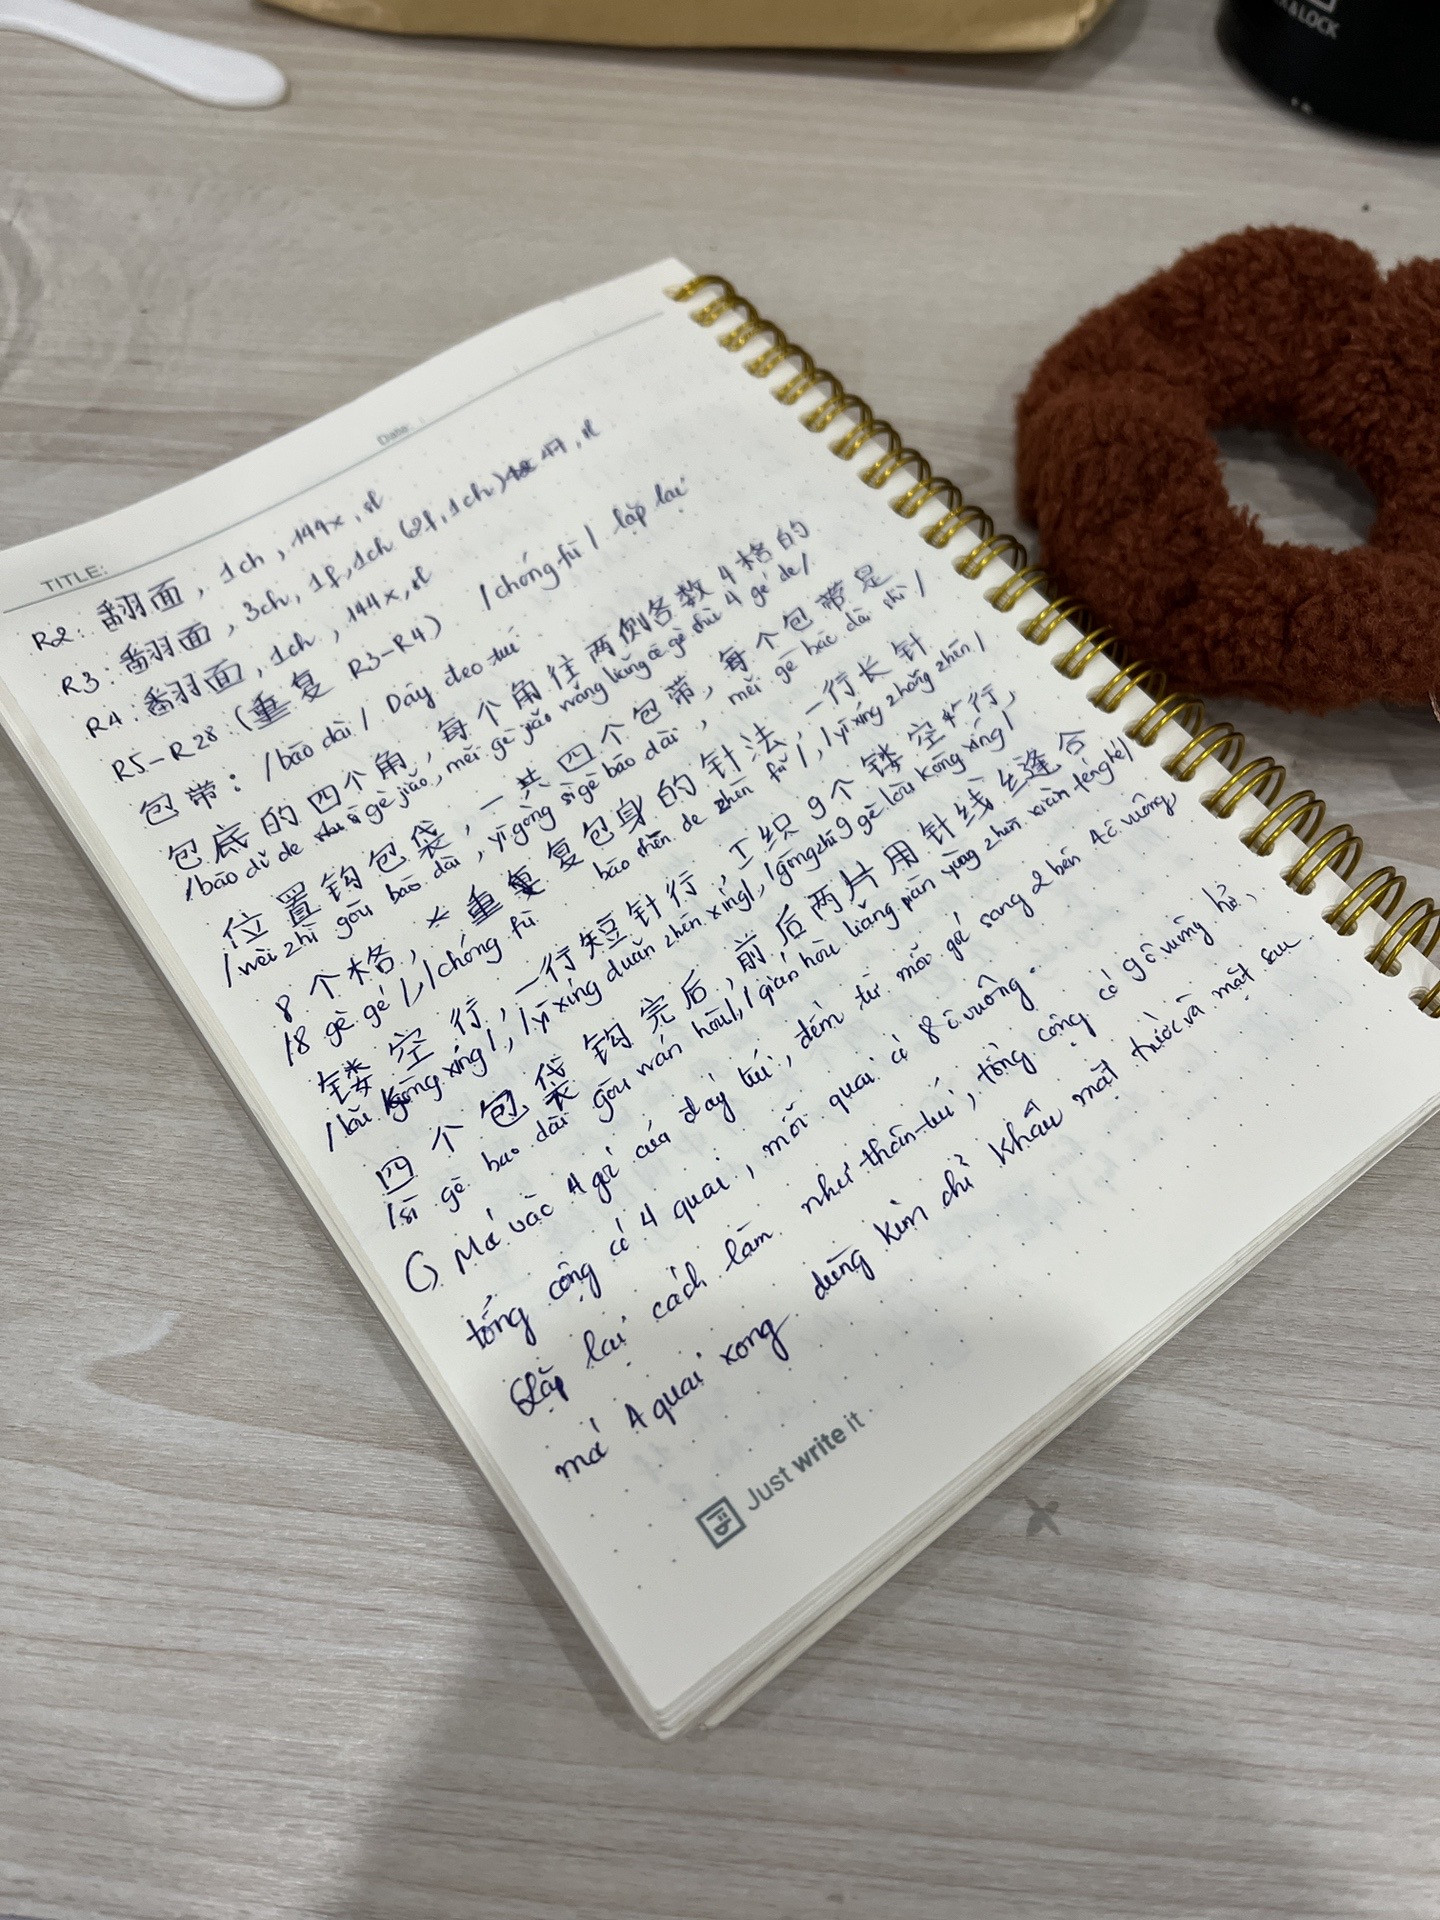 K&LOCK
Date:
TITLE:
R2: 翻面, 1ch, 144x, sl
R3: 翻面, 3ch, 1f, 1ch (2f, 1ch) 47, sl
R4: 翻面, 1ch, 144x, sl
R5-R28: (重复 R3-R4) /chóng fù/ lặp lại
包带: /bāo dài/ Dây đeo túi
包底的四个角, 每个角往两侧各数4格的
/bāo dǐ de sì gè jiǎo, měi gè jiǎo wǎng liǎng cè gè shǔ 4 gé de/
位置钩包袋, 一共四个包带, 每个包带是
/wèi zhì gōu bāo dài, yīgòng sì gè bāo dài, měi gè bāo dài shì/
8个格, *重复包身的针法, 一行长针
/8 gè gé/, /chóng fù bāo shēn de zhēn fǎ/, /yī xíng zhǎng zhēn/
镂空行, 一行短针行, 工织9个镂空行,
/lòu kōng xíng/, /yī xíng duǎn zhēn xíng/, /gōng zhī 9 gè lòu kōng xíng/
四个包袋钩完后, 前后两片用针线缝合
/sì gè bao dài gōu wán hòu/, /qián hòu liǎng piàn yòng zhēn xiàn féng hé/
Mó vào 4 góc của đáy túi, đếm từ mỗi góc sang 2 bên 4 ô vuông
tổng cộng có 4 quai, mỗi quai có 8 ô vuông.
Lặp lại cách làm như thân túi, tổng cộng có 9 ô vuông hở,
mó 4 quai xong dùng kim chỉ khâu mặt trước và mặt sau
Just write it